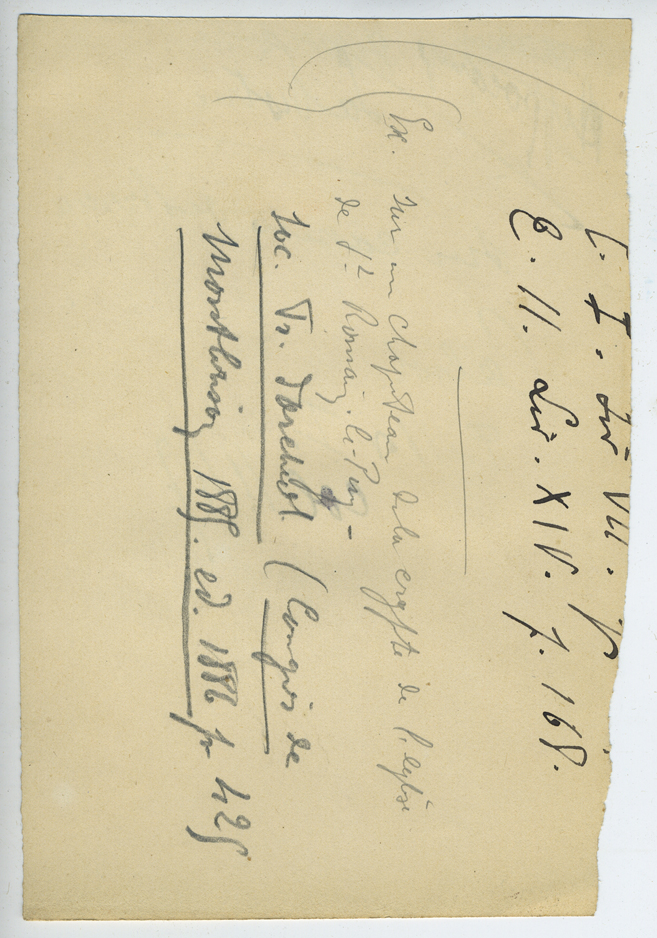 E. II. Liv. XIV. p. 168.
Ex. sur un chapiteau de la crypte de l'eglise
de St Romain-le-Puy -
Soc. Fr. d'archéol. (Congrès de
Montbrison 1885. ed. 1886 p 425